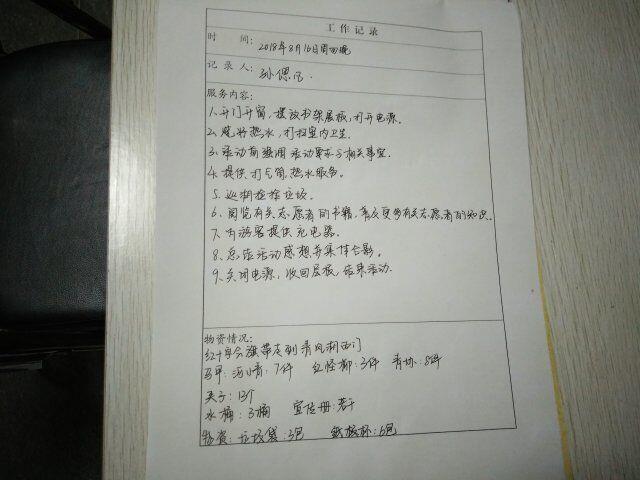 工作记录
时 间: 2018年8月16日周四晚
记录人: 孙偲
服务内容:
1.开门开窗,摆放书架展板,打开电源。
2.烧好热水,打扫室内卫生.
3.活动前强调活动要求与相关事宜.
4.提供打气筒,热水服务。
5.巡湖检拾垃圾.
6.阅览有关志愿者的书籍,有关志愿者的知识.
7.为游客提供充电器.
8.总结活动感想并集体合影。
9.关闭电源,收回展板,结束活动.
物资情况:
红十字会旗带走到清风湖西门
马甲:海小青:7件 红柽柳:3件 青协:8件
夹子:13个
水桶:3桶 宣传册:若干
物资:垃圾袋:3包 纸杯:6包